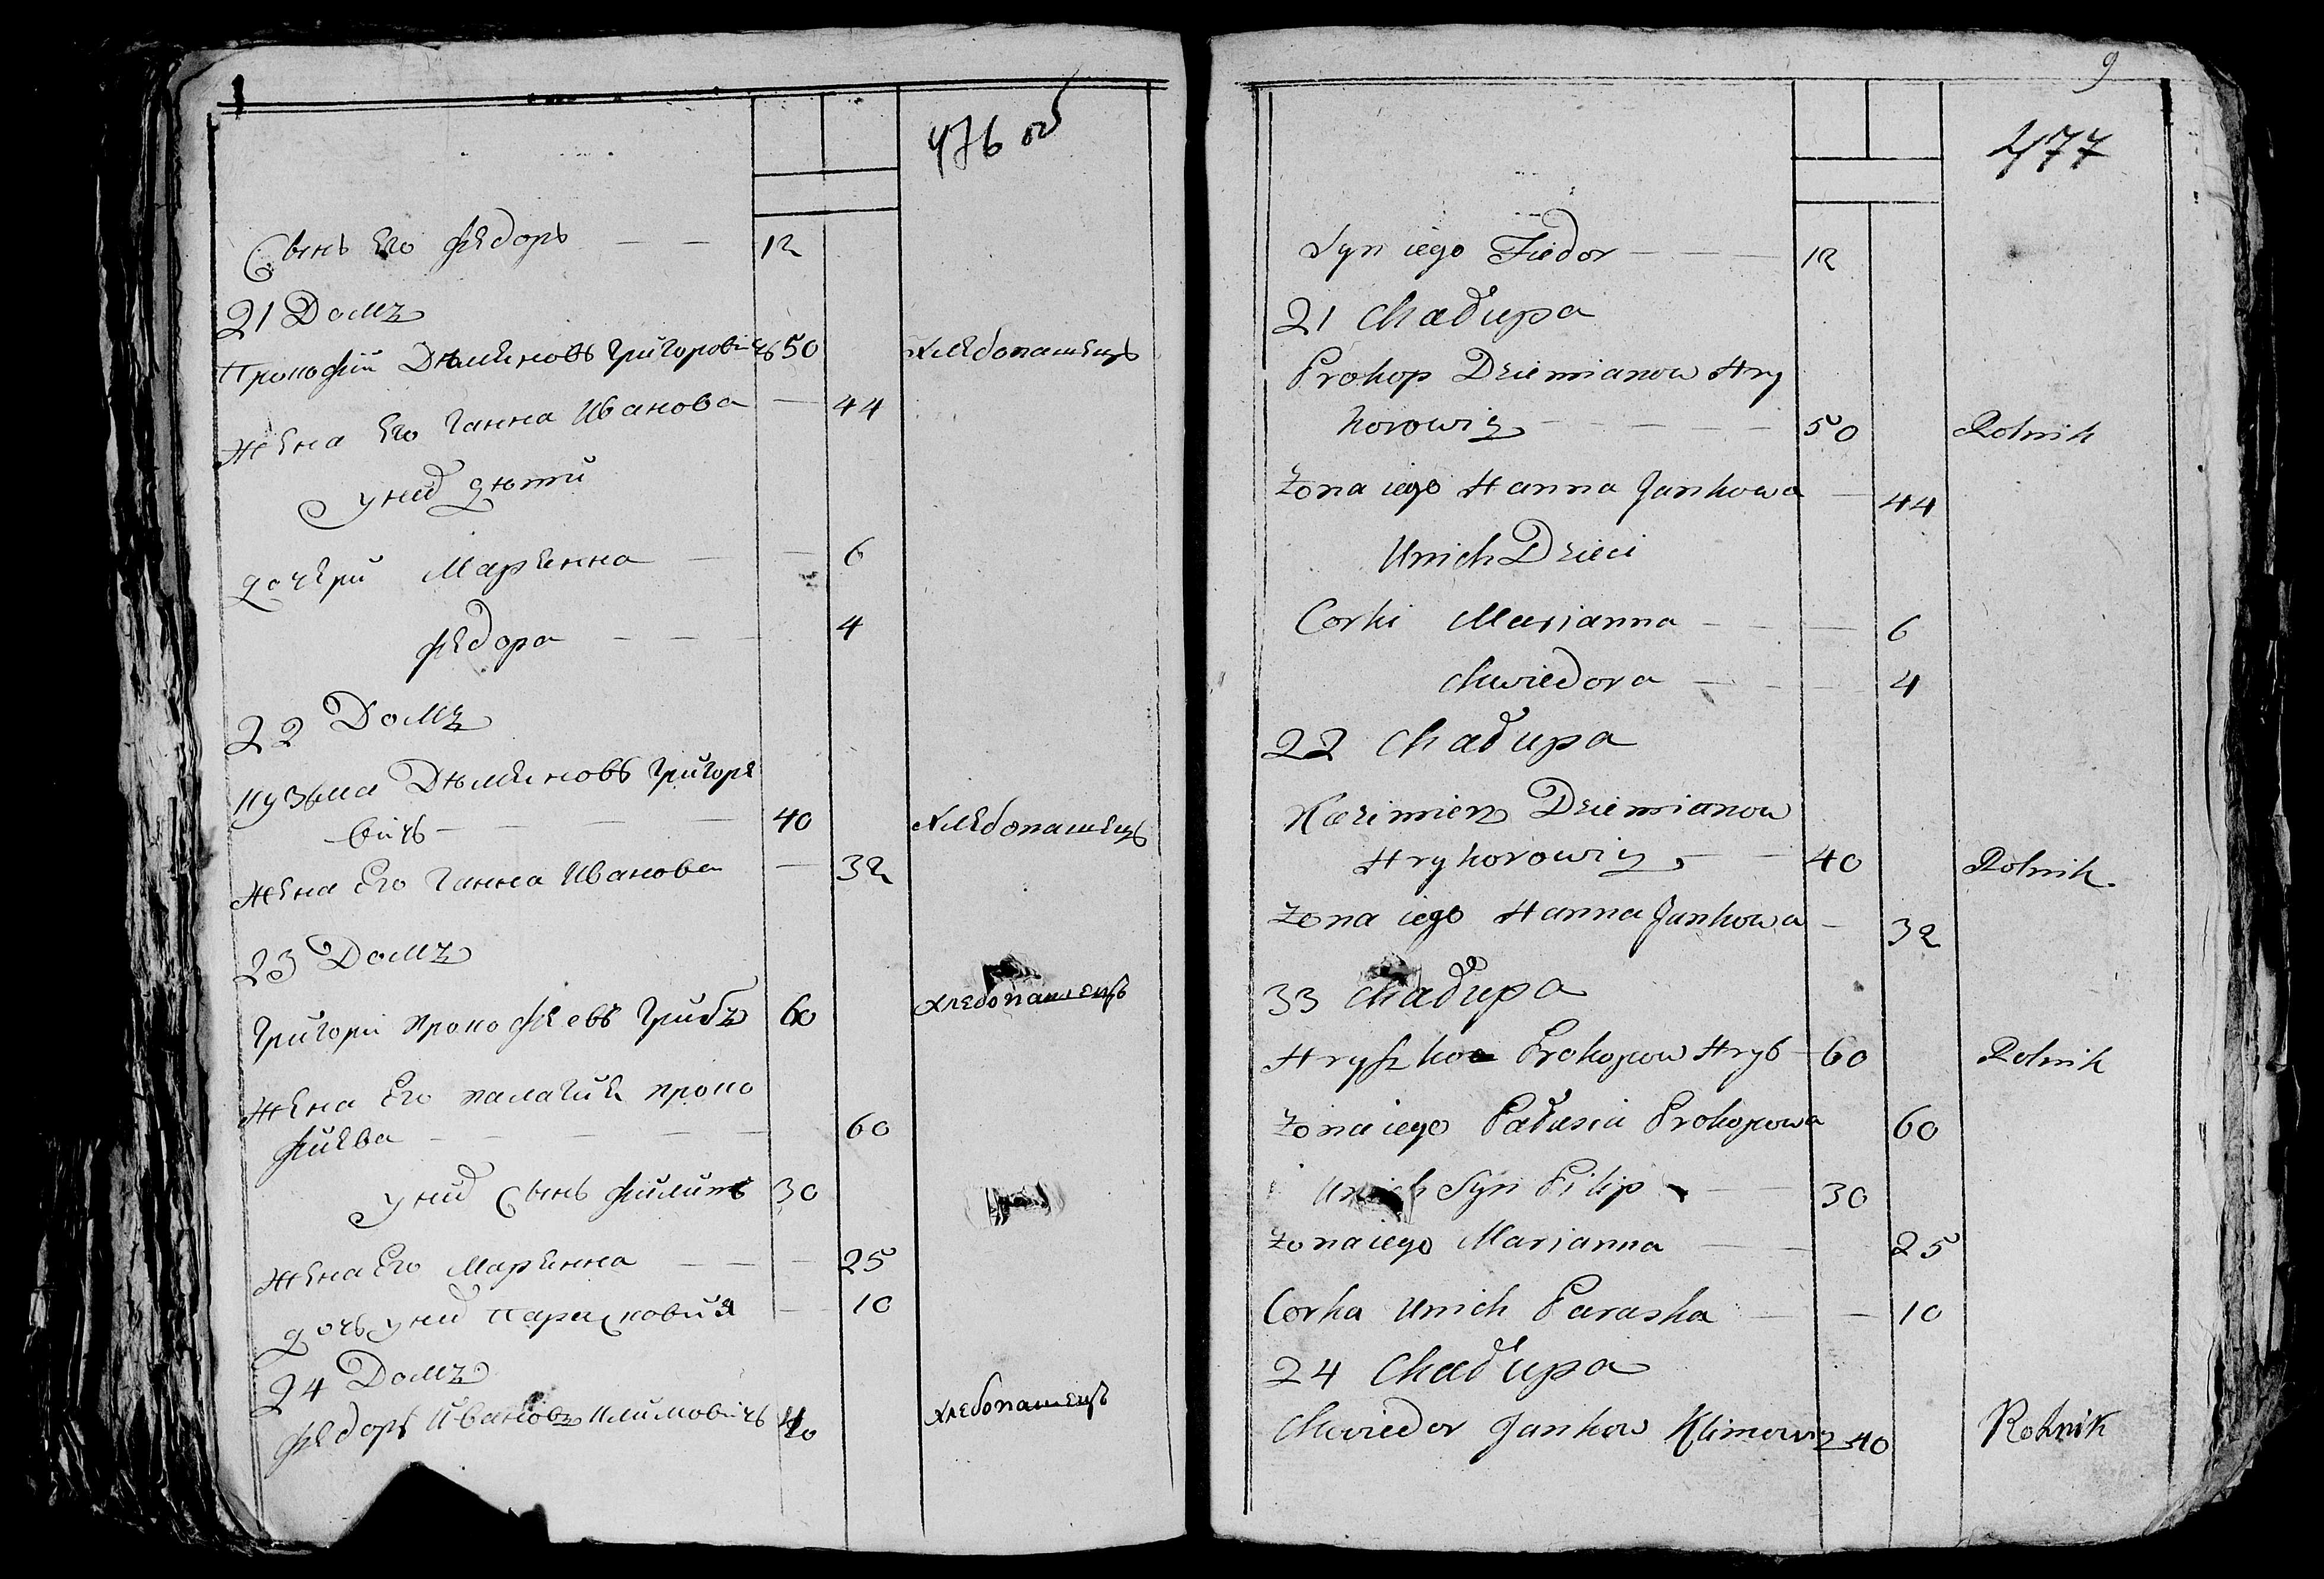 476 об
Сынъ Его Федоръ — — 12
21 Домъ
Прокофий Дѣмяновъ Григоровичъ 50 хлебопашецъ
жена Его Ганна Иванова — 44
у них дѣти
дочери Марянна — — 6
Федора — — — 4
22 Домъ
Кузьма Дѣмяновъ Григоре
вичъ — — — — 40 хлебопашецъ
жена Его Ганна Иванова — 32
23 Домъ
Григорий Прокофевъ Грибъ 60 хлебопашецъ
жена Его Палагия Проко
фиева — — — — 60
у них Сынъ Филипъ 30
жена Его Марянна — — — 25
дочь у них Парасковия — 10
24 Домъ
Федоръ Ивановъ Климовичъ 40 хлебопашецъ
9
477
Syn iego Fiedor — — — 12
21 Chałupa
Prokop Dziemianow Hry
horowicz — — — — — 50 Rolnik
Żona iego Hanna Jankowa — 44
Unich Dzieci
Corki Marianna — — — 6
Chwiedora — — — 4
22 Chałupa
Kazimierz Dziemianow
Hryhorowicz — — 40 Rolnik
Żona iego Hanna Jankowa — 32
33 Chałupa
Hryszko Prokopow Hryb — 60 Rolnik
Żona iego Pałasia Prokopowa 60
Unich Syn Filip — — 30
Żona iego Marianna — — 25
Corka Unich Paraska — — 10
24 Chałupa
Chwiedor Jankow Klimowicz 40 Rolnik